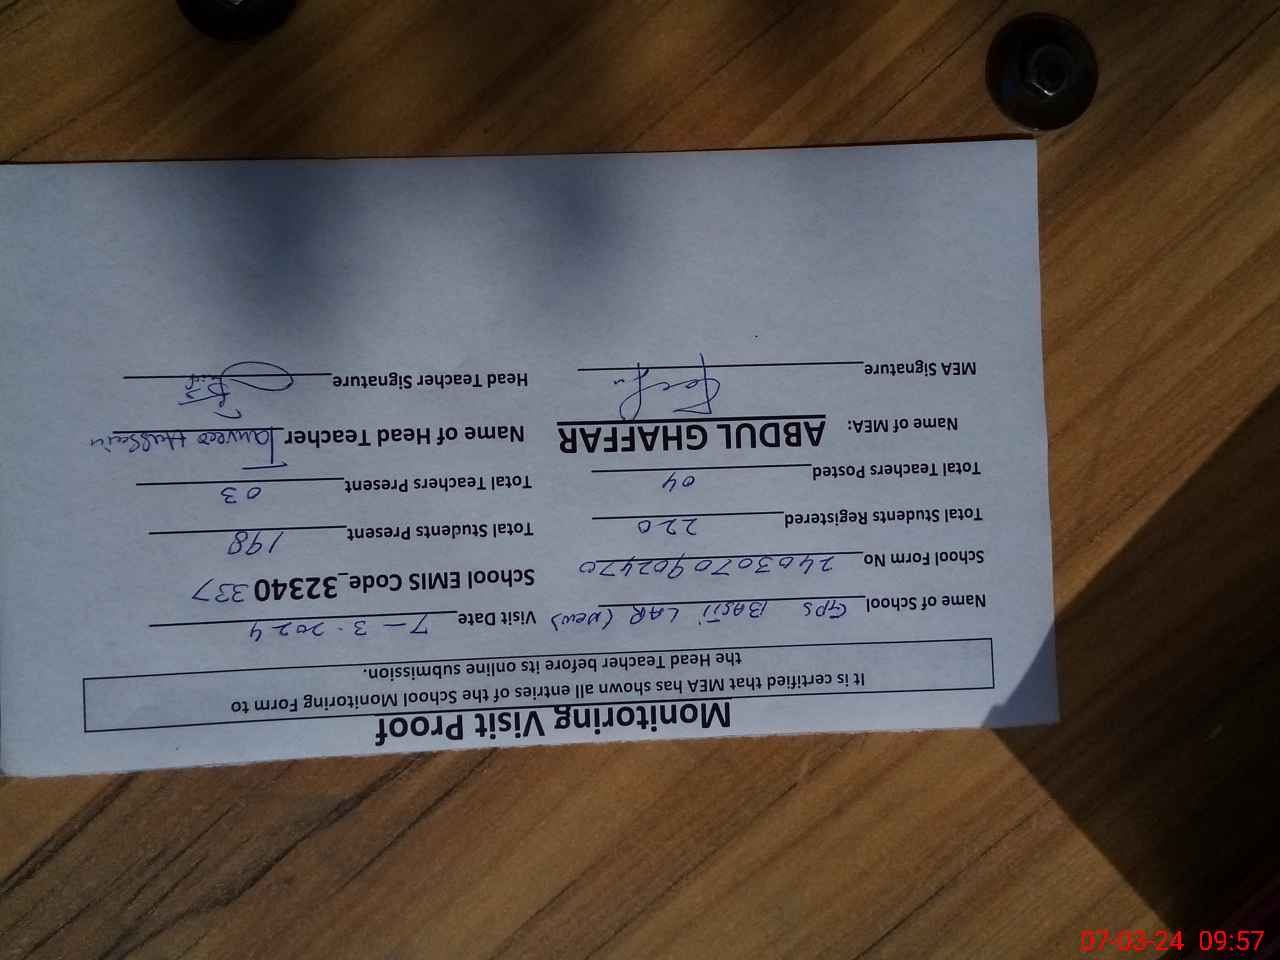 Monitoring Visit Proof
It is certified that MEA has shown all entries of the School Monitoring Form to
the Head Teacher before its online submission.
Name of School GPS BASTI LAR (New) Visit Date 7-3-2024
School Form No 2403070902470 School EMIS Code_32340 337
Total Students Registered 220 Total Students Present 198
Total Teachers Posted 04 Total Teachers Present 03
Name of MEA: ABDUL GHAFFAR Name of Head Teacher Tanveer Hussain
MEA Signature Head Teacher Signature
07-03-24 09:57